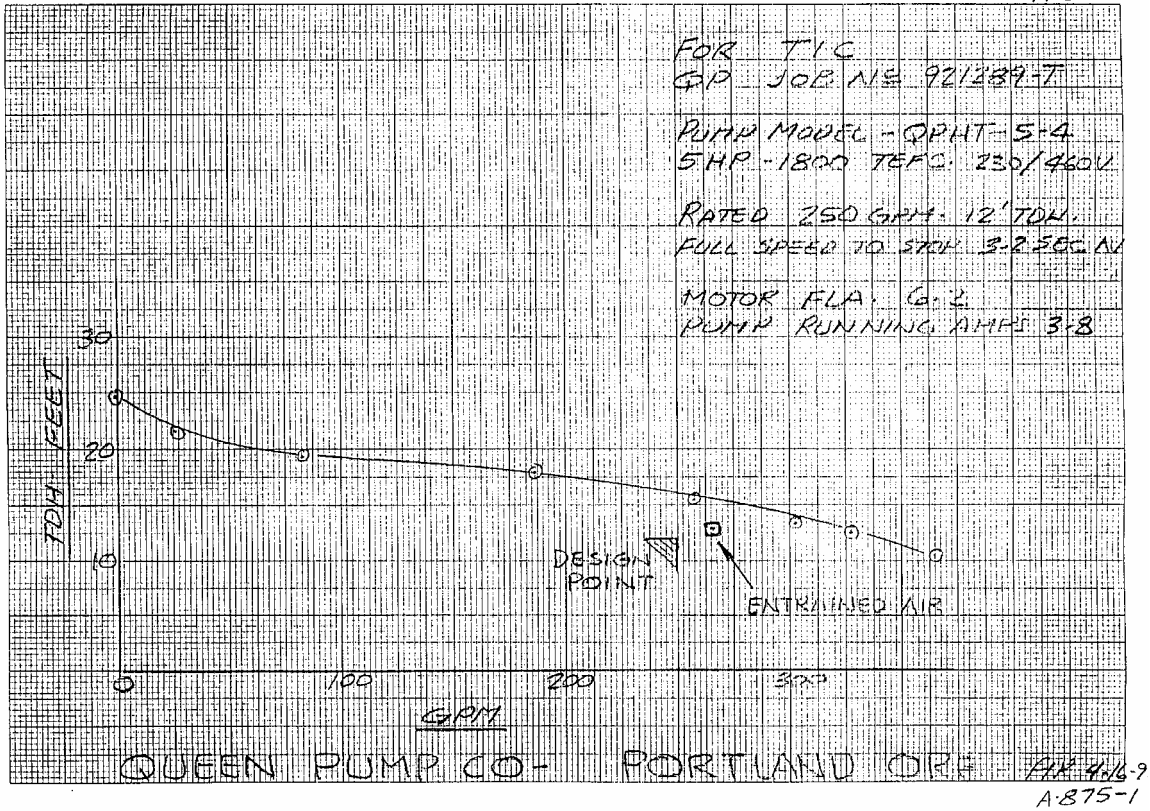 FOR TIC
QP JOB NO 921289-T
PUMP MODEL - QPHT-5-4
5HP - 1800 TEFC. 230/460V
RATED 250 GPM. 12' TDH.
FULL SPEED TO STOP 3-2 SEC
MOTOR FLA. 6.2
PUMP RUNNING AMPS 3-8
30
20
10
TDH. FEET
DESIGN
POINT
ENTRAINED AIR
0 100 200 300
GPM
QUEEN PUMP CO- PORTLAND ORE
A-875-1